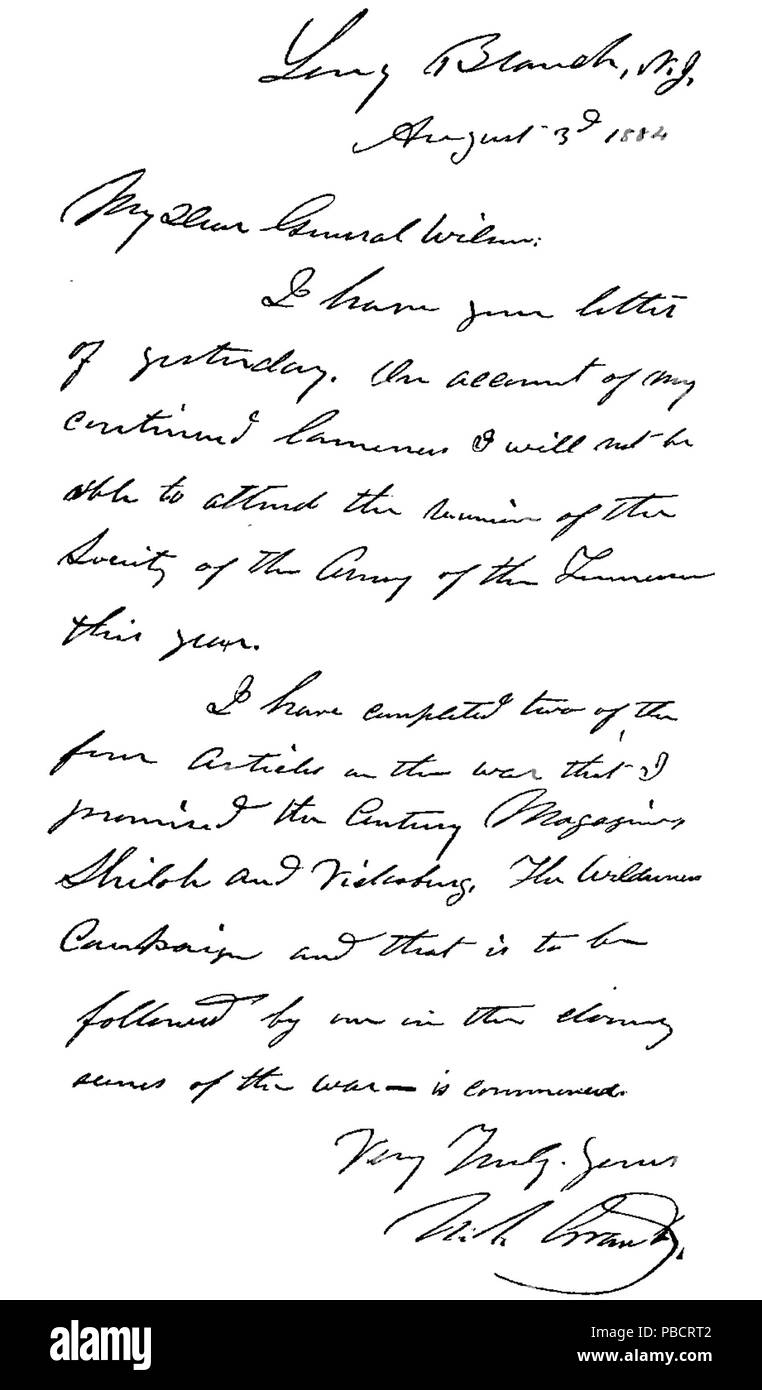 Long Branch, N.J.
August 3d 1884
My Dear General Wilson:
I have your letter
of yesterday. On account of my
continued lameness I will not be
able to attend the reunion of the
Society of the Army of the Tennessee
this year.
I have completed two of the
four articles on the war that I
promised the Century Magazine,
Shiloh and Vicksburg. The Wilderness
Campaign and that is to be
followed by one on the closing
scenes of the war — is commenced.
Very Truly Yours
U.S. Grant.
alamy
Image ID: PBCRT2
www.alamy.com